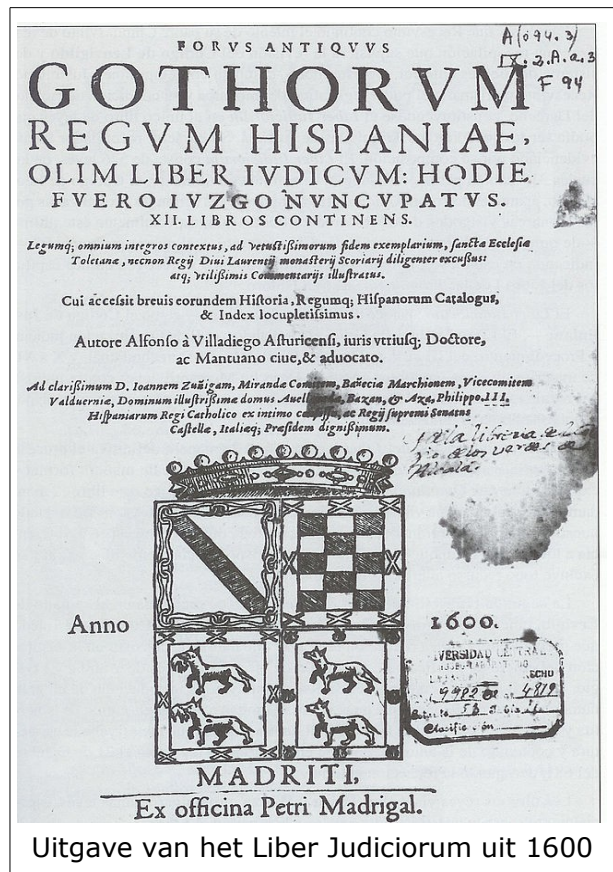 FORVS ANTIQVVS
GOTHORVM
REGVM HISPANIAE,
OLIM LIBER IVDICVM: HODIE
FVERO IVZGO NVNCVPATVS.
XII. LIBROS CONTINENS.
A(094.3)
IX.2.A.a.3
F 94
Legumq; omnium integros contextus, ad vetustißimorum fidem exemplarium, sanctæ Ecclesiæ
Toletanæ, necnon Regij Diui Laurentij monasterij Scoriarij diligenter excußus:
atq; vtilißimis Commentarijs illustratus.
Cui accessit breuis eorundem Historia, Regumq; Hispanorum Catalogus,
& Index locupletissimus.
Autore Alfonso à Villadiego Asturicensi, iuris vtriusq; Doctore,
ac Mantuano ciue, & aduocato.
Ad clarißimum D. Ioannem Zuñigam, Mirandæ Comitem, Bañeciæ Marchionem, Vicecomitem
Valduerniæ, Dominum illustrißimæ domus Auellaneda, Bazan, & Aza, Philippo.III.
Hispaniarum Regi Catholico ex intimo ac Regij supremi Senatus
Castellæ, Italiæq; Præsidem dignißimum.
de la libreria de
Anno
1600.
9902 4819
MADRITI,
Ex officina Petri Madrigal.
Uitgave van het Liber Judiciorum uit 1600